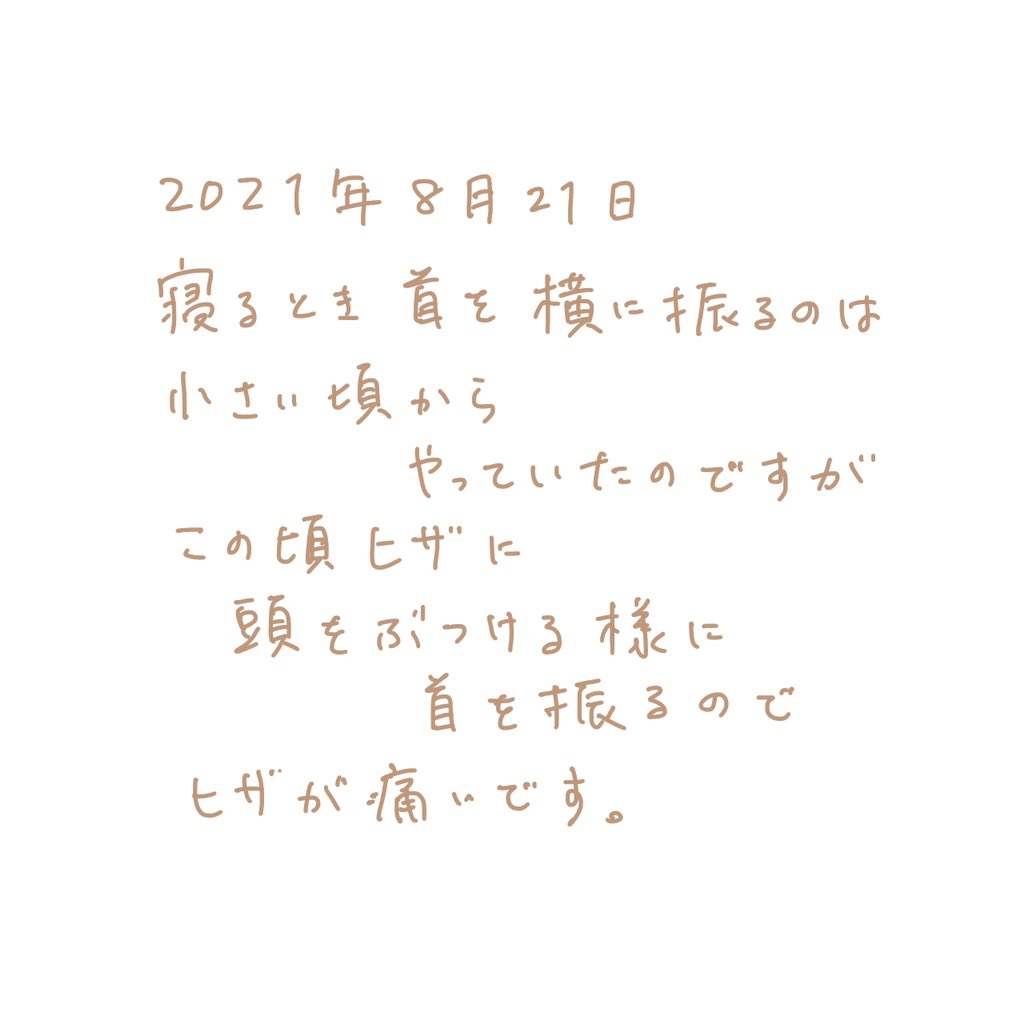 2021年8月21日
寝るとき首を横に振るのは
小さい頃から
やっていたのですが
この頃ヒザに
頭をぶつける様に
首を振るので
ヒザが痛いです。